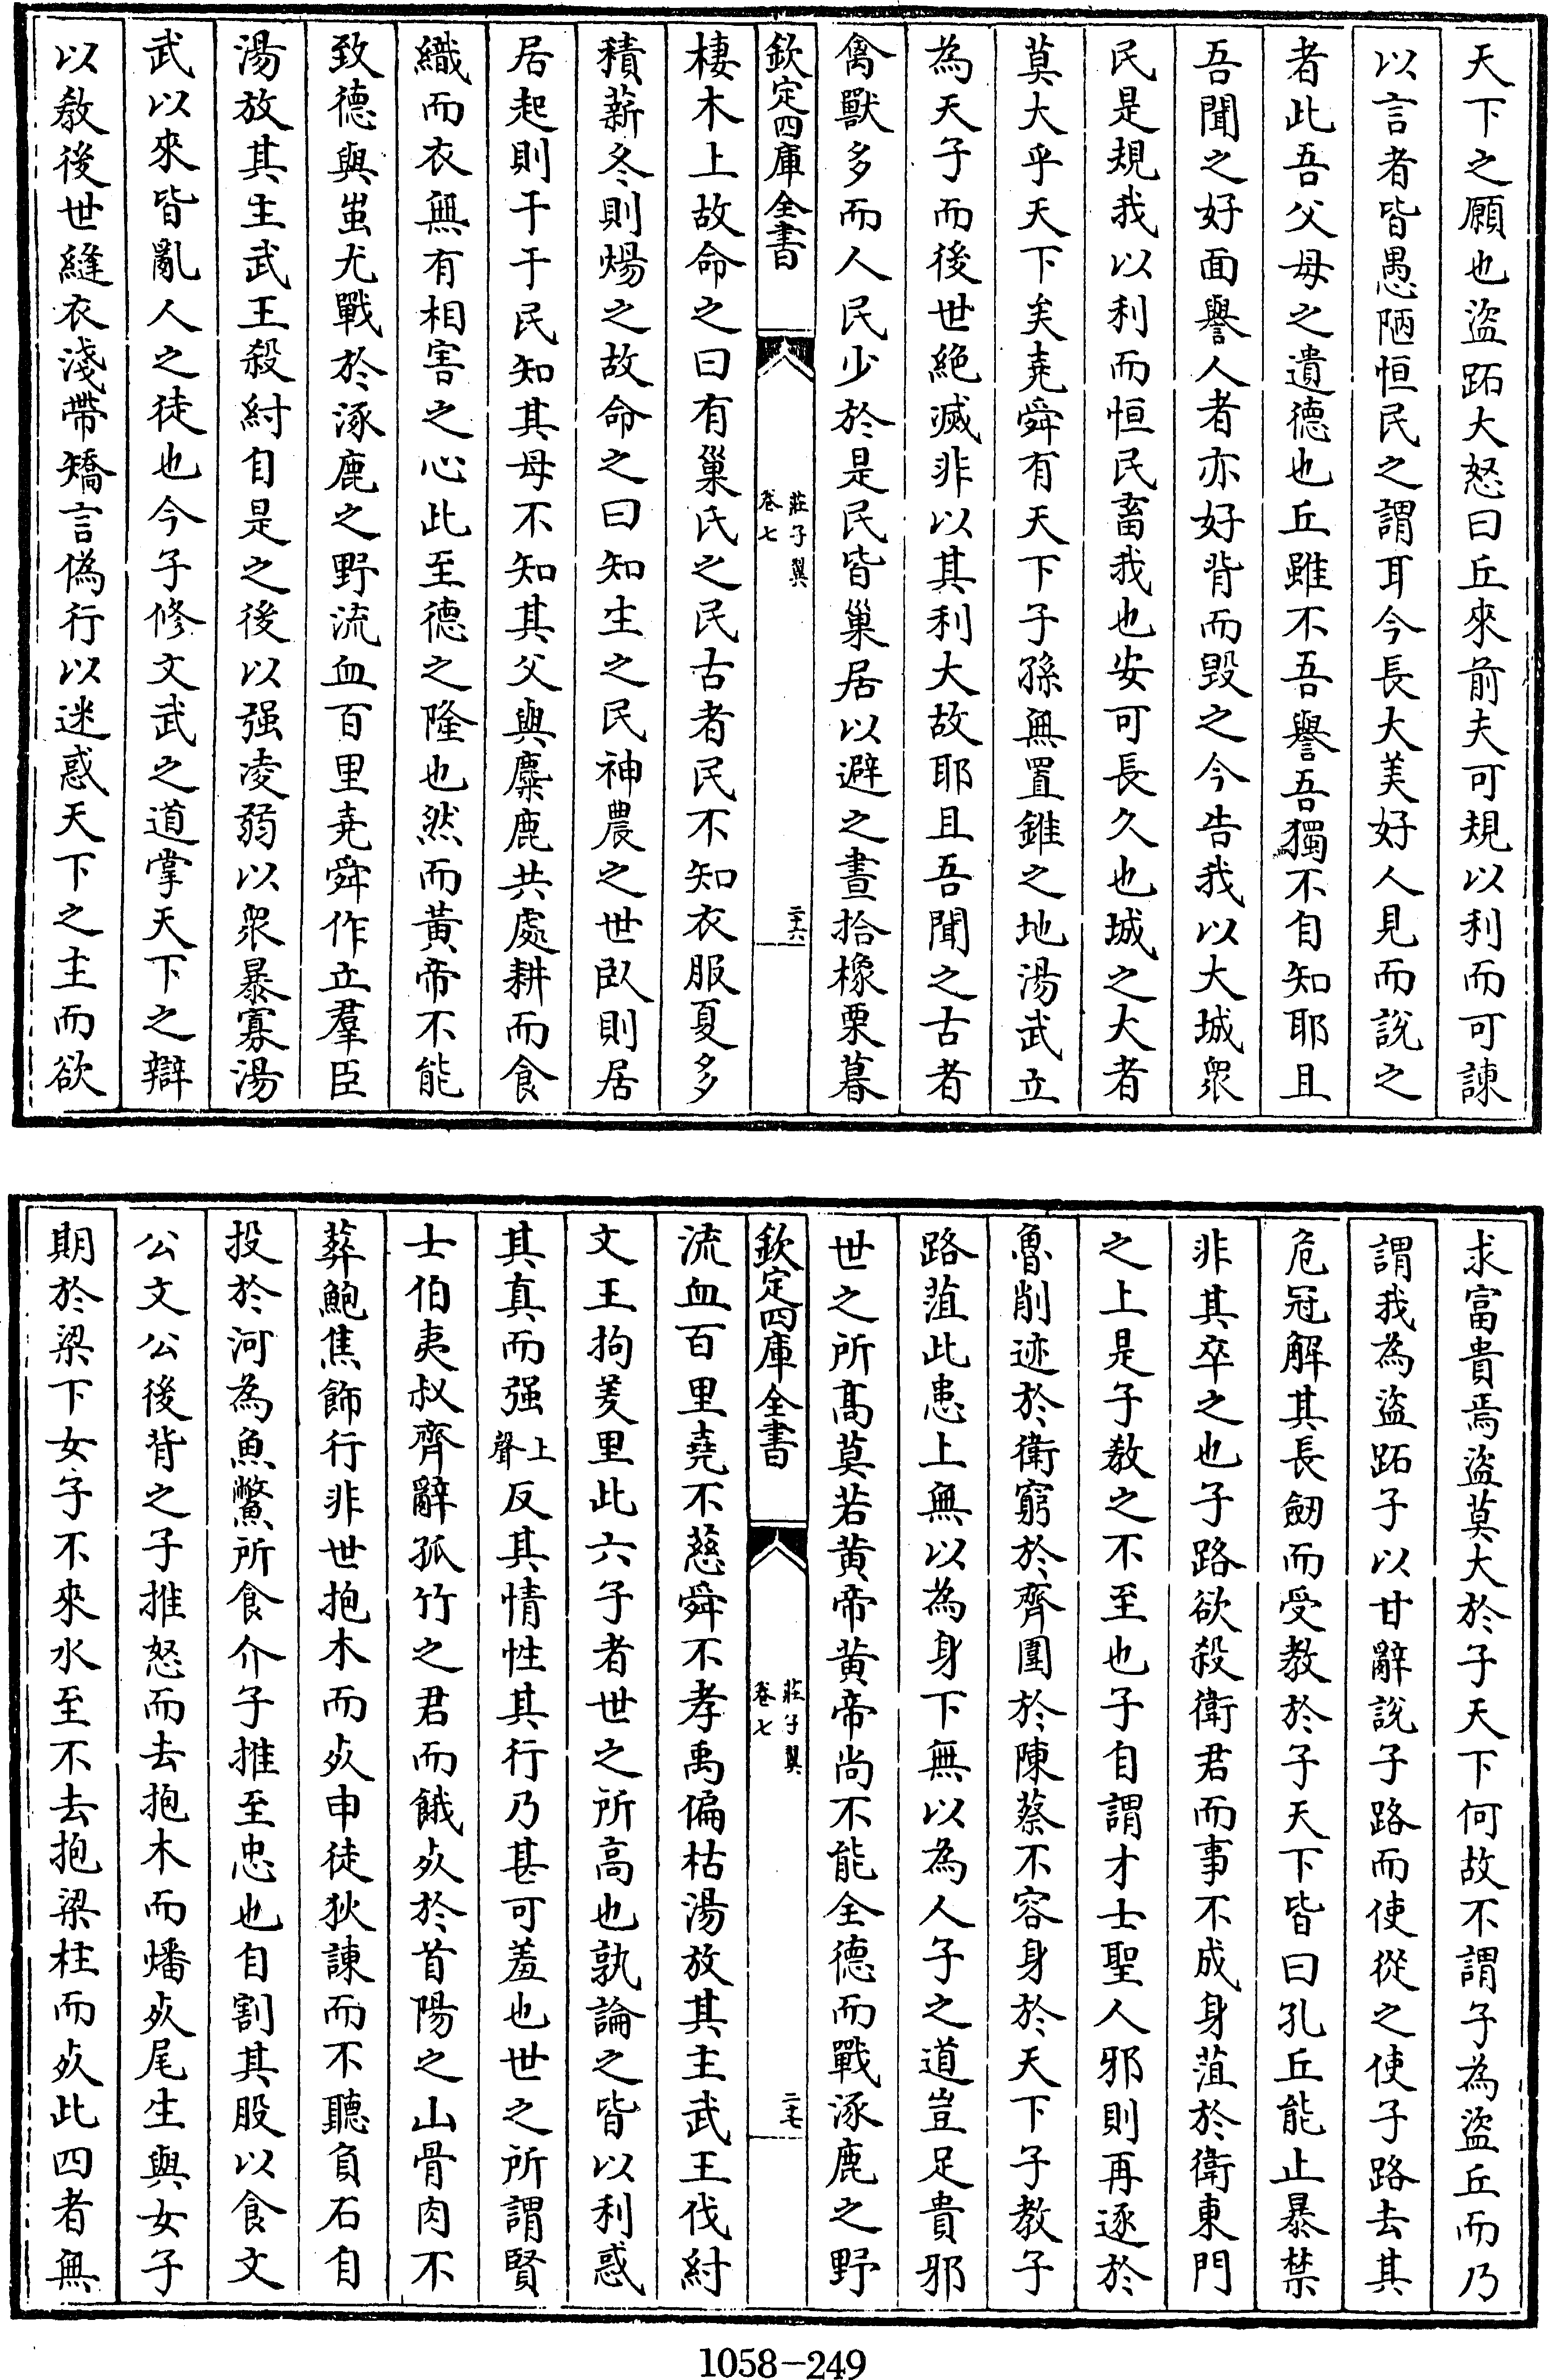 天下之願也盜跖大怒曰丘來前夫可規以利而可諫
以言者皆愚陋恒民之謂耳今長大美好人見而說之
者此吾父母之遺德也丘雖不吾譽吾獨不自知耶且
吾聞之好面譽人者亦好背而毀之今告我以大城衆
民是規我以利而恒民畜我也安可長久也城之大者
莫大乎天下矣堯舜有天下子孫無置錐之地湯武立
為天子而後世絕滅非以其利大故耶且吾聞之古者
禽獸多而人民少於是民皆巢居以避之晝拾橡栗暮
欽定四庫全書
莊子翼
卷七
二十六
棲木上故命之曰有巢氏之民古者民不知衣服夏多
積薪冬則煬之故命之曰知生之民神農之世臥則居
居起則于于民知其母不知其父與麋鹿共處耕而食
織而衣無有相害之心此至德之隆也然而黃帝不能
致德與蚩尤戰於涿鹿之野流血百里堯舜作立羣臣
湯放其主武王殺紂自是之後以强凌弱以衆暴寡湯
武以來皆亂人之徒也今子修文武之道掌天下之辯
以教後世縫衣淺帶矯言偽行以迷惑天下之主而欲
求富貴焉盜莫大於子天下何故不謂子為盜丘而乃
謂我為盜跖子以甘辭說子路而使從之使子路去其
危冠解其長劒而受教於子天下皆曰孔丘能止暴禁
非其卒之也子路欲殺衛君而事不成身菹於衛東門
之上是子教之不至也子自謂才士聖人邪則再逐於
魯削迹於衛窮於齊圍於陳蔡不容身於天下子教子
路菹此患上無以為身下無以為人子之道豈足貴邪
世之所高莫若黃帝黃帝尚不能全德而戰涿鹿之野
欽定四庫全書
莊子翼
卷七
二十七
流血百里堯不慈舜不孝禹偏枯湯放其主武王伐紂
文王拘羑里此六子者世之所高也孰論之皆以利惑
其真而强上聲反其情性其行乃甚可羞也世之所謂賢
士伯夷叔齊辭孤竹之君而餓死於首陽之山骨肉不
葬鮑焦飾行非世抱木而死申徒狄諫而不聽負石自
投於河為魚鱉所食介子推至忠也自割其股以食文
公文公後背之子推怒而去抱木而燔死尾生與女子
期於梁下女子不來水至不去抱梁柱而死此四者無
1058-249